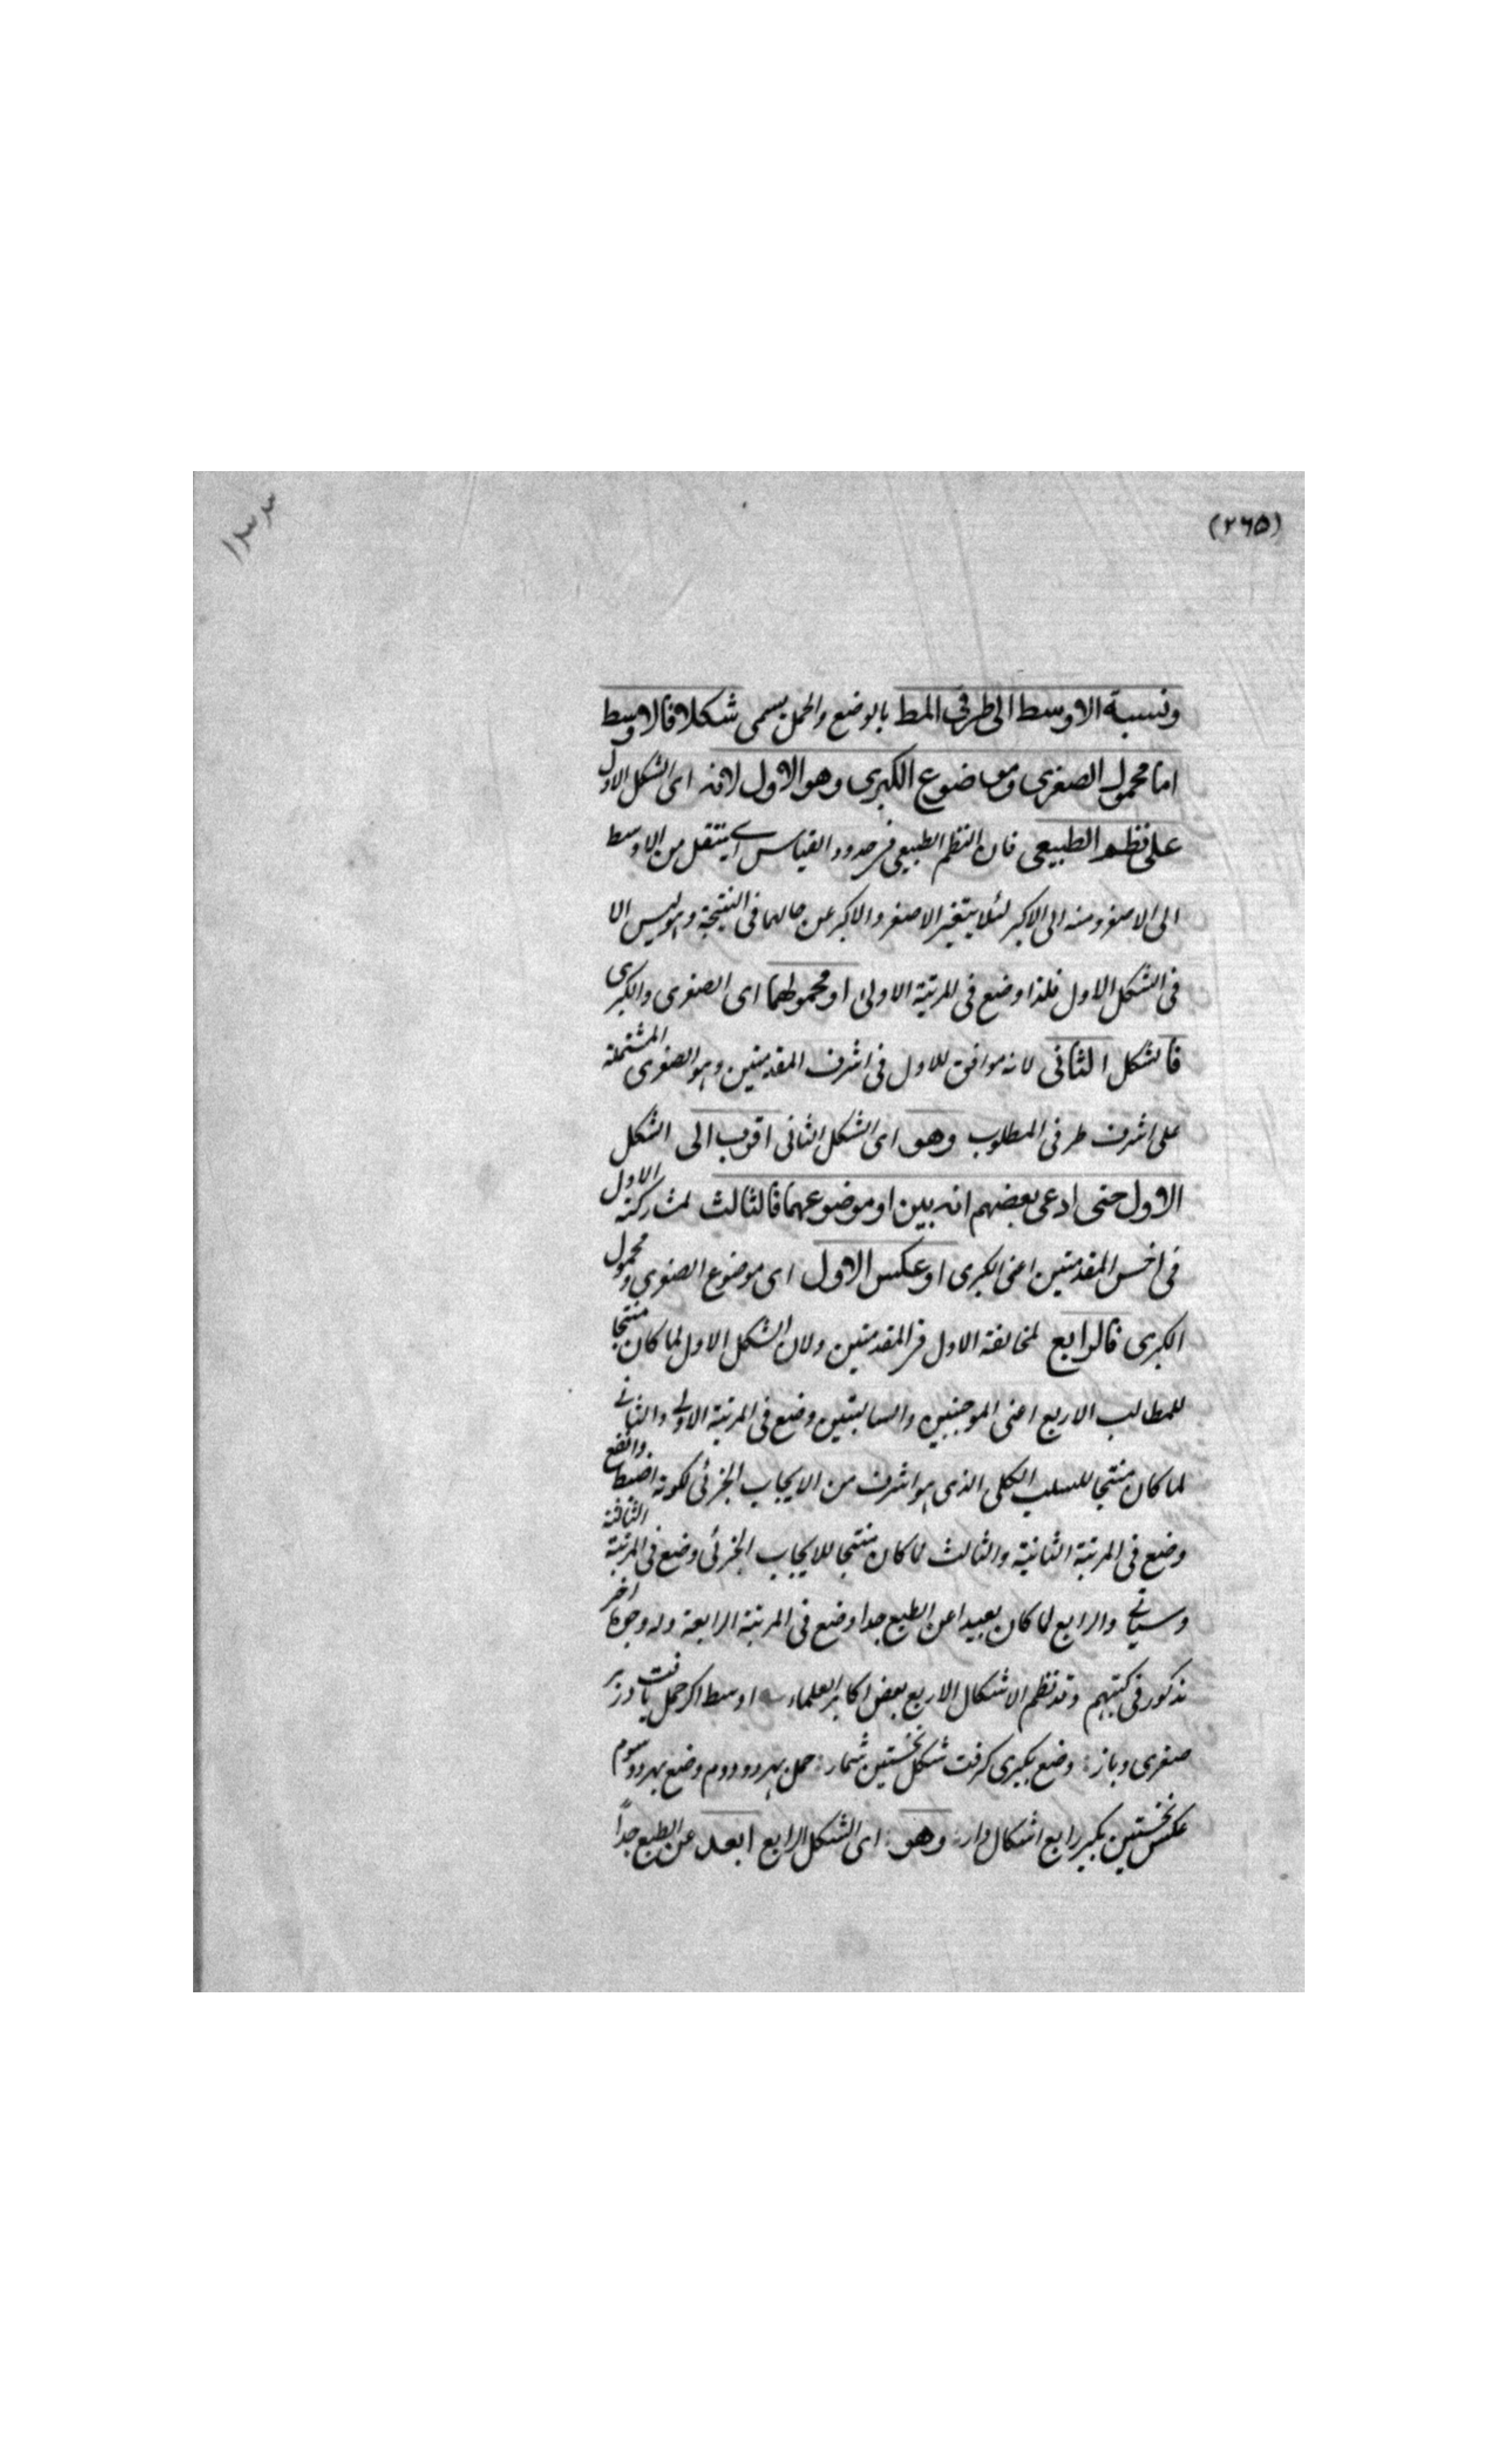 (٢٦٥)
١٣٣
ونسبة الاوسط الى طرفى المط بالوضع والحمل يسمى شكلا فالاوسط
اما محمول الصغرى وموضوع الكبرى وهو الاول لانه اى الشكل الاول
على نظم الطبيعى فان النظم الطبيعى فى حدود القياس ان ينتقل من الاوسط
الى الاصغر ومنه الى الاكبر لئلا يتغير الاصغر والاكبر عن حالهما فى النتيجة وهو ليس الا
فى الشكل الاول فلذا وضع فى المرتبة الاولى او محمولهما اى الصغرى والكبرى
فالشكل الثانى لانه موافق للاول فى اشرف المقدمتين وهو الصغرى المشتملة
على اشرف طرفى المطلوب وهو اى الشكل الثانى اقرب الى الشكل
الاول حتى ادعى بعضهم انه بين او موضوعهما فالثالث لمشاركته الاول
فى اخس المقدمتين اعنى الكبرى او عكس الاول اى موضوع الصغرى ومحمول
الكبرى فالرابع لمخالفة الاول فى المقدمتين ولان الشكل الاول لما كان منتجا
للمطالب الاربع اعنى الموجبتين والسالبتين وضع فى المرتبة الاولى والثانى
لما كان منتجا للسلب الكلى الذى هو اشرف من الايجاب الجزئى لكونه اضبط وانفع
وضع فى المرتبة الثانية والثالث لما كان منتجا للايجاب الجزئى وضع فى المرتبة الثالثة
وسياتى والرابع لما كان بعيدا عن الطبع جدا وضع فى المرتبة الرابعة وله وجوها اخر
مذكور فى كتبهم وقد نظم الاشكال الاربع بعض اكابر العلماء اوسط اكر حمل يافت در بر
صغرى وباز : وضع بكبرى كرفت شكل نخستين شمار : حمل بهر دو دوم وضع بهر دو سوم
عكس نخستين بكير رابع اشكال دار : وهو : اى الشكل الرابع ابعد عن الطبع جداً